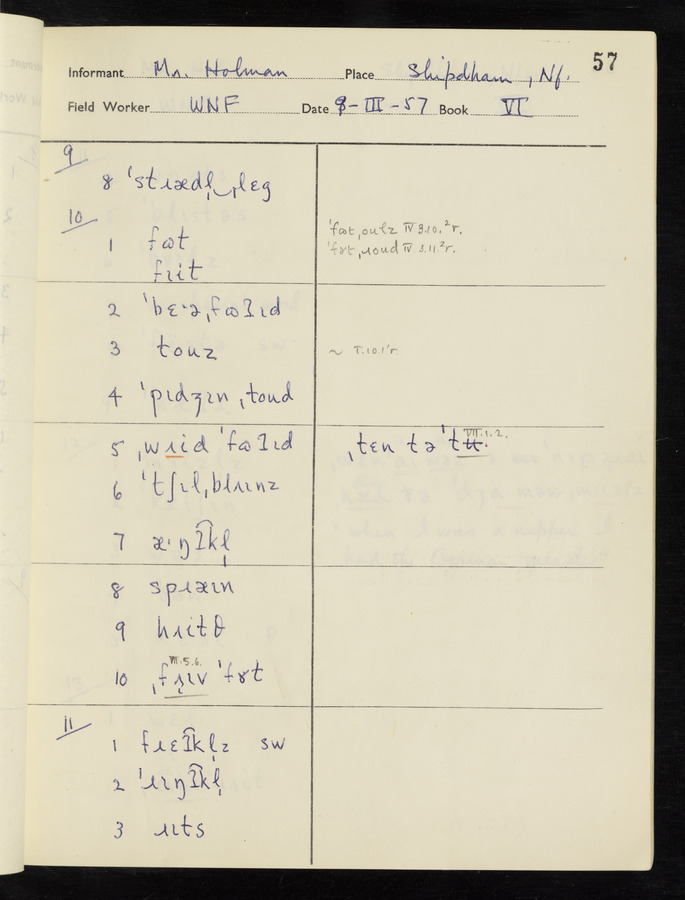 57
Informant Mr. Holman Place Shipdham, Nf.
Field Worker WNF Date 8-III-57 Book VI
9/
8 ˈstɹædl̩‿ˌlɛg
10/
1 fɷt
fɪit
ˈfɷt,outz IV 3.10.²r.
ˈfɤt,ɹoud IV 3.11.²r.
2 ˈbɛ·ə,fɷʔɪd
3 touz
~ V.10.1ʳr.
4 ˈpɪdʒɪn ˌtoud
5 ˌwɹid ˈfɷʔɪd
ˌtɛn tə ˈtʉ VII.1.2.
6 ˈtʃɪl,blɪɪnz
7 æ·ŋʔkl̩
8 spɹæɪn
9 hɪitθ
10 ˌfɹɪv ˈfɤt VII.5.6.
11/
1 fɹɛʔkl̩z sw
2 ˈɹɪŋʔkl̩
3 ɹɪts